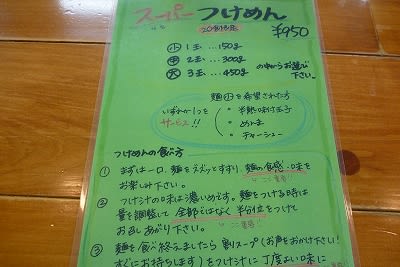 スーパーつけめん
20食限定
¥950
小 1玉…150g
中 2玉…300g
大 3玉…450g
の中からお選び
下さい。
麺小を希望された方
いずれか1つを
サービス!!
・半熟味付玉子
・めんま
・チャーシュー
つけめんの食べ方
① まずは一口、麺をズズッとすすり、麺の食感・味を
お楽しみ下さい。
② つけ汁の味は濃いめです。麺をつける時は
量を調整して全部ではなく半分位をつけて
お召しあがり下さい。
③ 麺を食べ終えましたら割りスープ(お声をおかけ下さい!
すぐにお持ちします)をつけ汁に丁度よい味に